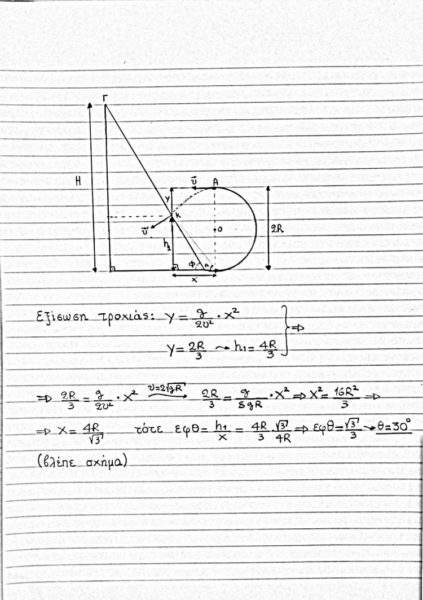 Γ
H
A
υ⃗
y
K
O
2R
υ⃗
h₁
φ
x
Εξίσωση τροχιάς: y = g/2υ² · x²
y = 2R/3 → h₁ = 4R/3 } ⇒
⇒ 2R/3 = g/2υ² · x² υ=2√gR → 2R/3 = g/8gR · x² ⇒ x² = 16R²/3 ⇒
⇒ x = 4R/√3 τότε εφθ = h₁/x = 4R/3 · √3/4R ⇒ εφθ = √3/3 → θ = 30°
(βλέπε σχήμα)